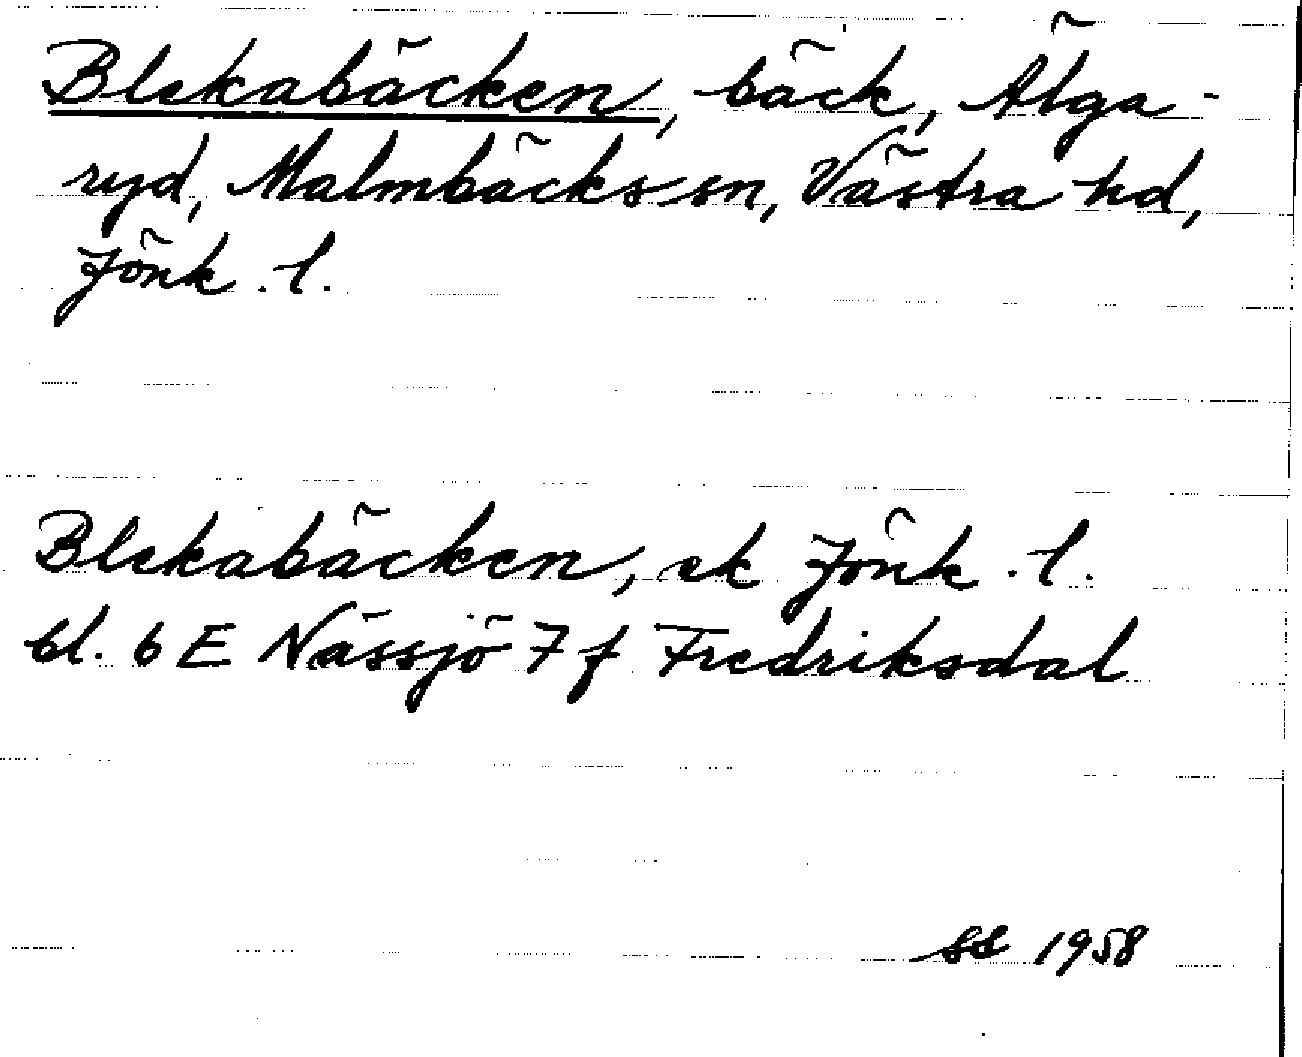 Blekabäcken, bäck, Älga-
ryd, Malmbäcks sn, Västra hd,
Jönk. l.
Blekabäcken, ek Jönk. l.
bl. 6 E Nässjö 7 f Fredriksdal
SS 1958